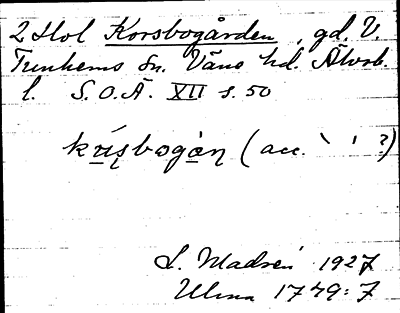 2 Hol Korsbogården, gd. V.
Tunhems sn. Väne hd. Älvsb.
l. S.O.Ä. XII s. 50
(acc. ` ' ?)
S. Madsén 1927
Ulma 1779:7